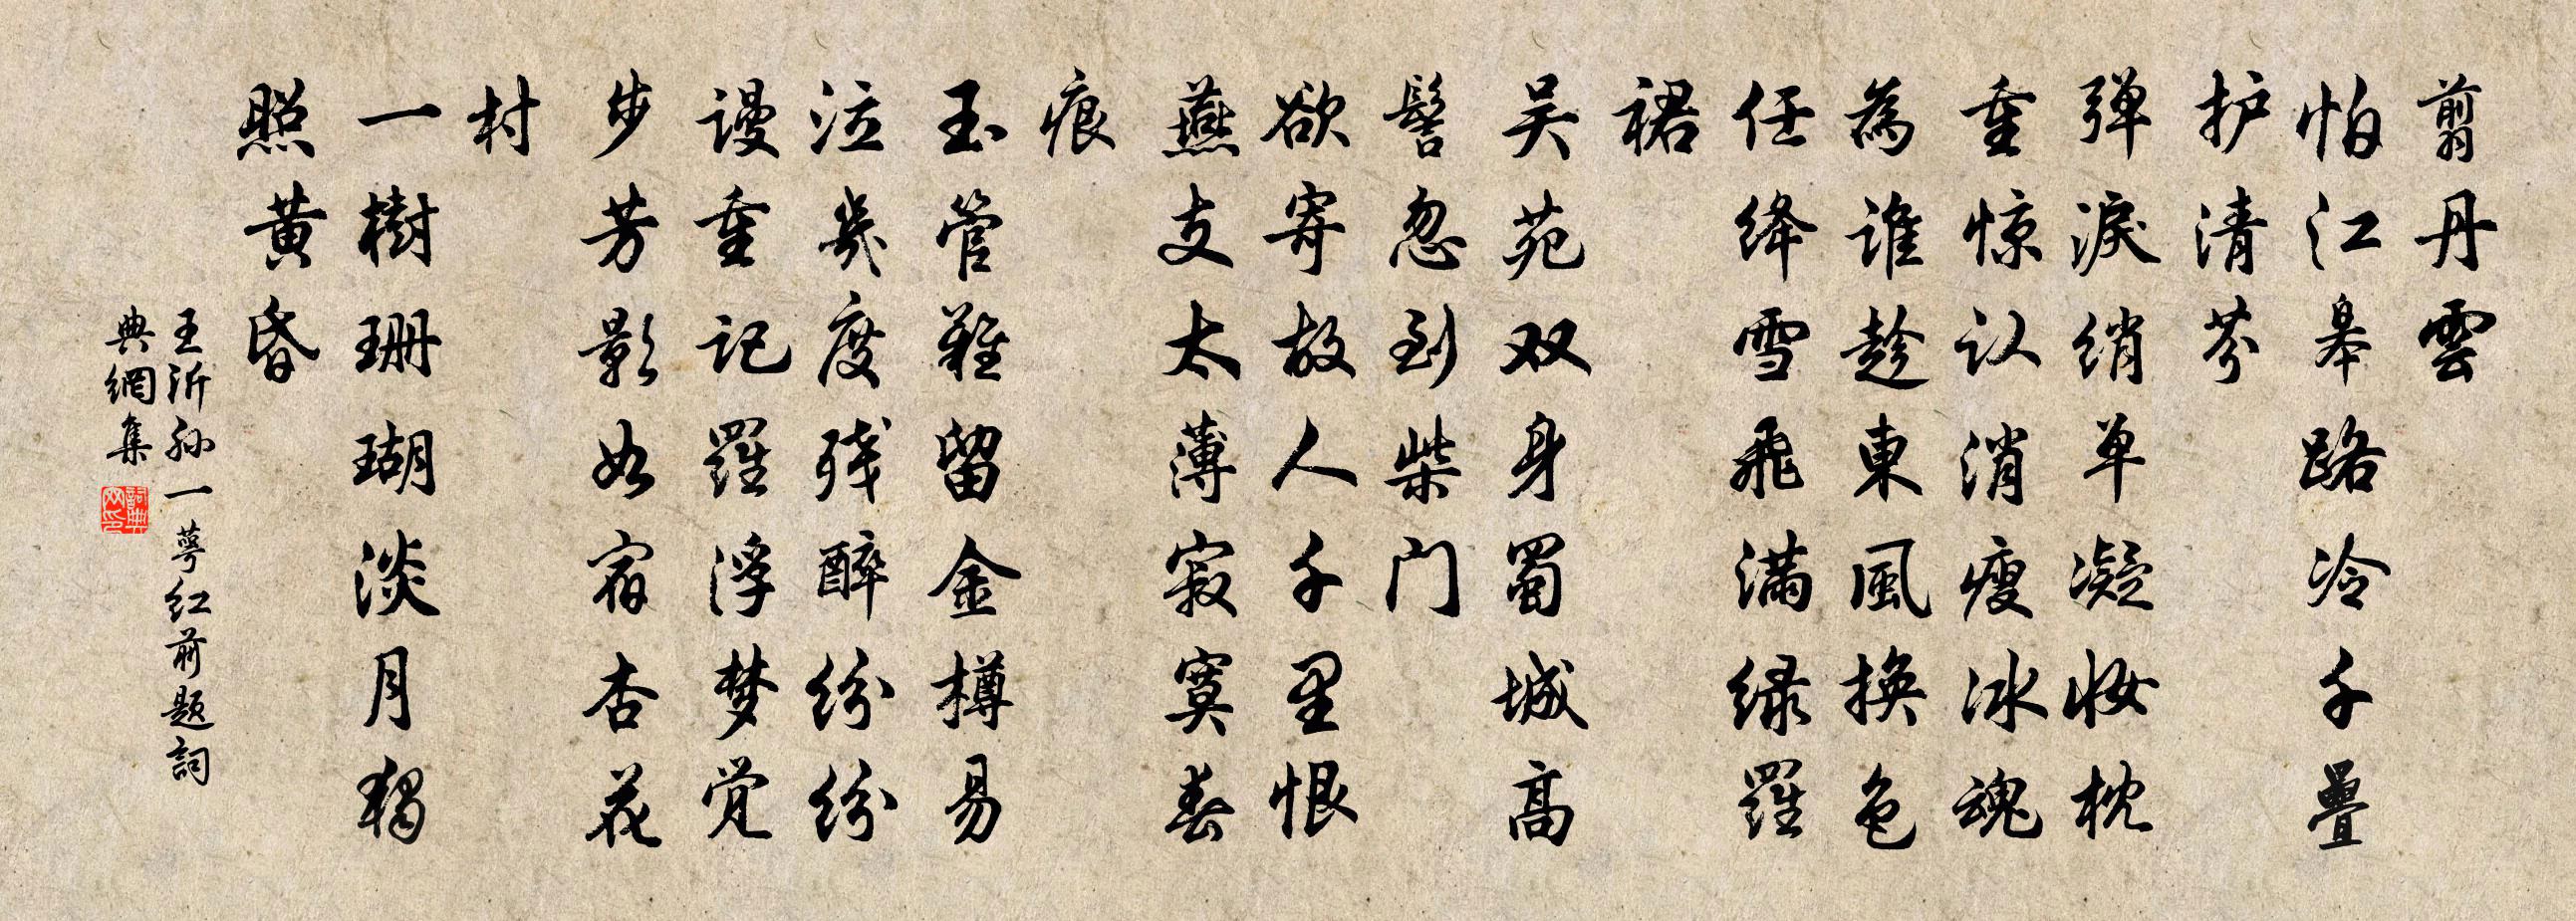 剪丹雲
怕江皋路冷千疊
护清芬
弹淚绡单凝妆枕
重惊认消瘦冰魂
為谁趁東風换色
任绛雪飛满绿羅
裙
吴苑双身蜀城高
髻忽到柴门
欲寄故人千里恨
燕支太薄寂寞春
痕
玉管難留金樽易
泣幾度残醉纷纷
谩重记羅浮梦觉
步芳影如宿杏花
村
一樹珊瑚淡月独
照黄昏
王沂孙一萼红前题詞
典網集
詞典网印